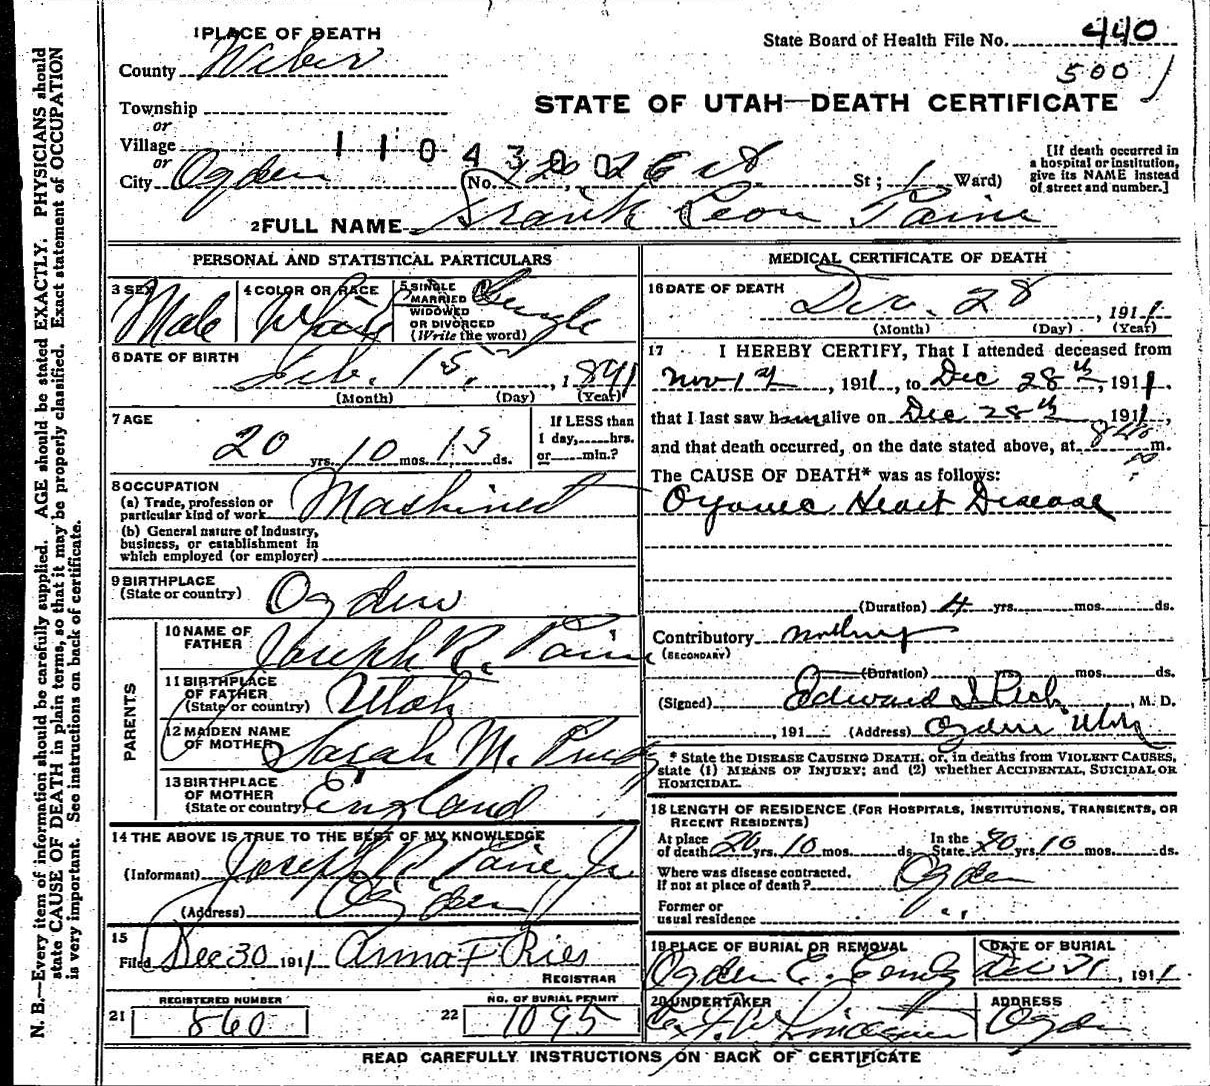 N. B.—Every item of information should be carefully supplied. AGE should be stated EXACTLY. PHYSICIANS should
state CAUSE OF DEATH in plain terms, so that it may be properly classified. Exact statement of OCCUPATION
is very important. See instructions on back of certificate.
1 PLACE OF DEATH
County Weber
Township
or
Village
or
City Ogden
110430026
State Board of Health File No. 440
500
STATE OF UTAH—DEATH CERTIFICATE
[If death occurred in
a hospital or institution,
give its NAME instead
of street and number.]
No. St; 1 Ward)
2 FULL NAME Frank Leon Paine
PERSONAL AND STATISTICAL PARTICULARS
3 SEX Male
4 COLOR OR RACE White
5 SINGLE
MARRIED
WIDOWED
OR DIVORCED
(Write the word) Single
6 DATE OF BIRTH
Feb. 15, 1891
(Month) (Day) (Year)
7 AGE
20 yrs. 10 mos. 13 ds.
If LESS than
1 day, hrs.
or min.?
8 OCCUPATION
(a) Trade, profession or
particular kind of work Mashinest
(b) General nature of Industry,
business, or establishment in
which employed (or employer)
9 BIRTHPLACE
(State or country) Ogden
PARENTS
10 NAME OF
FATHER Joseph R. Paine
11 BIRTHPLACE
OF FATHER
(State or country) Utah
12 MAIDEN NAME
OF MOTHER Sarah M. Purdy
13 BIRTHPLACE
OF MOTHER
(State or country) England
14 THE ABOVE IS TRUE TO THE BEST OF MY KNOWLEDGE
(Informant) Joseph R Paine Jr
(Address) Ogden
15
Filed Dec 30 1911 Anna F Ries
REGISTRAR
REGISTERED NUMBER
21 860
NO. OF BURIAL PERMIT
22 1095
MEDICAL CERTIFICATE OF DEATH
16 DATE OF DEATH
Dec. 28, 1911
(Month) (Day) (Year)
17 I HEREBY CERTIFY, That I attended deceased from
Nov 1st, 1911, to Dec 28th, 1911.
that I last saw him alive on Dec 28th, 1911,
and that death occurred, on the date stated above, at 840 m.
The CAUSE OF DEATH* was as follows:
Organic Heart Disease
(Duration) 4 yrs. mos. ds.
Contributory nothing
(SECONDARY)
(Duration) mos. ds.
(Signed) Edward I Rich, M. D.
, 191 (Address) Ogden Utah
* State the DISEASE CAUSING DEATH, or, in deaths from VIOLENT CAUSES,
state (1) MEANS OF INJURY; and (2) whether ACCIDENTAL, SUICIDAL OR
HOMICIDAL.
18 LENGTH OF RESIDENCE (FOR HOSPITALS, INSTITUTIONS, TRANSIENTS, OR
RECENT RESIDENTS)
At place
of death 20 yrs. 10 mos. ds.
In the
State 20 yrs. 10 mos. ds.
Where was disease contracted.
If not at place of death? Ogden
Former or
usual residence
19 PLACE OF BURIAL OR REMOVAL
Ogden
DATE OF BURIAL
Dec 31, 1911.
20 UNDERTAKER
ADDRESS
Ogden
READ CAREFULLY INSTRUCTIONS ON BACK OF CERTIFICATE